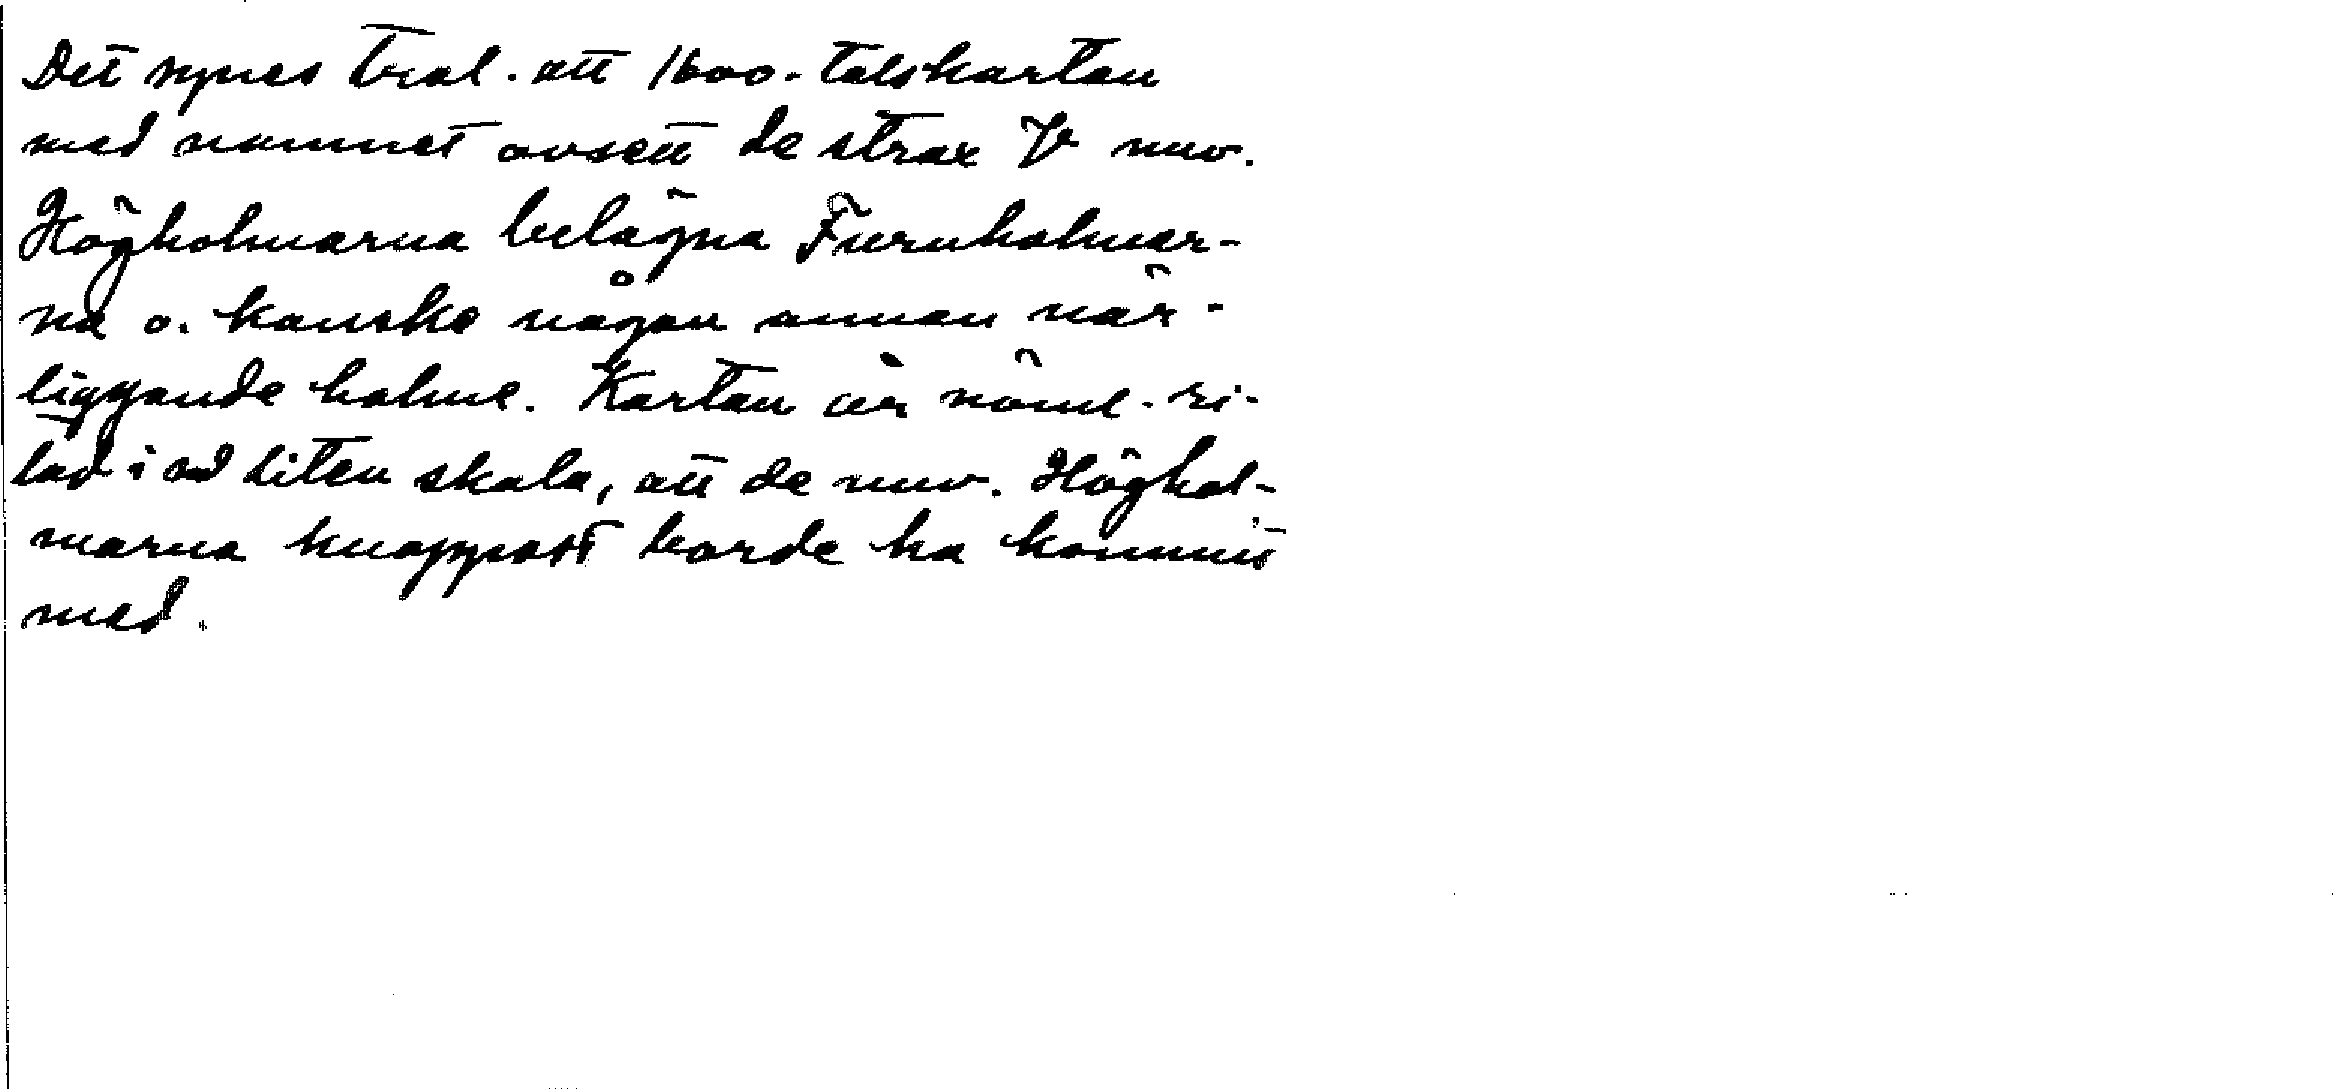 Det synes trol. att 1600-talskartan
med namnet avsett de strax V nuv.
Högholmarna belägna Furuholmar-
na o. kanske någon annan när-
liggande holme. Kartan är näml. ri-
tad i så liten skala, att de nuv. Laughol-
marna knappast borde ha kommit
med.